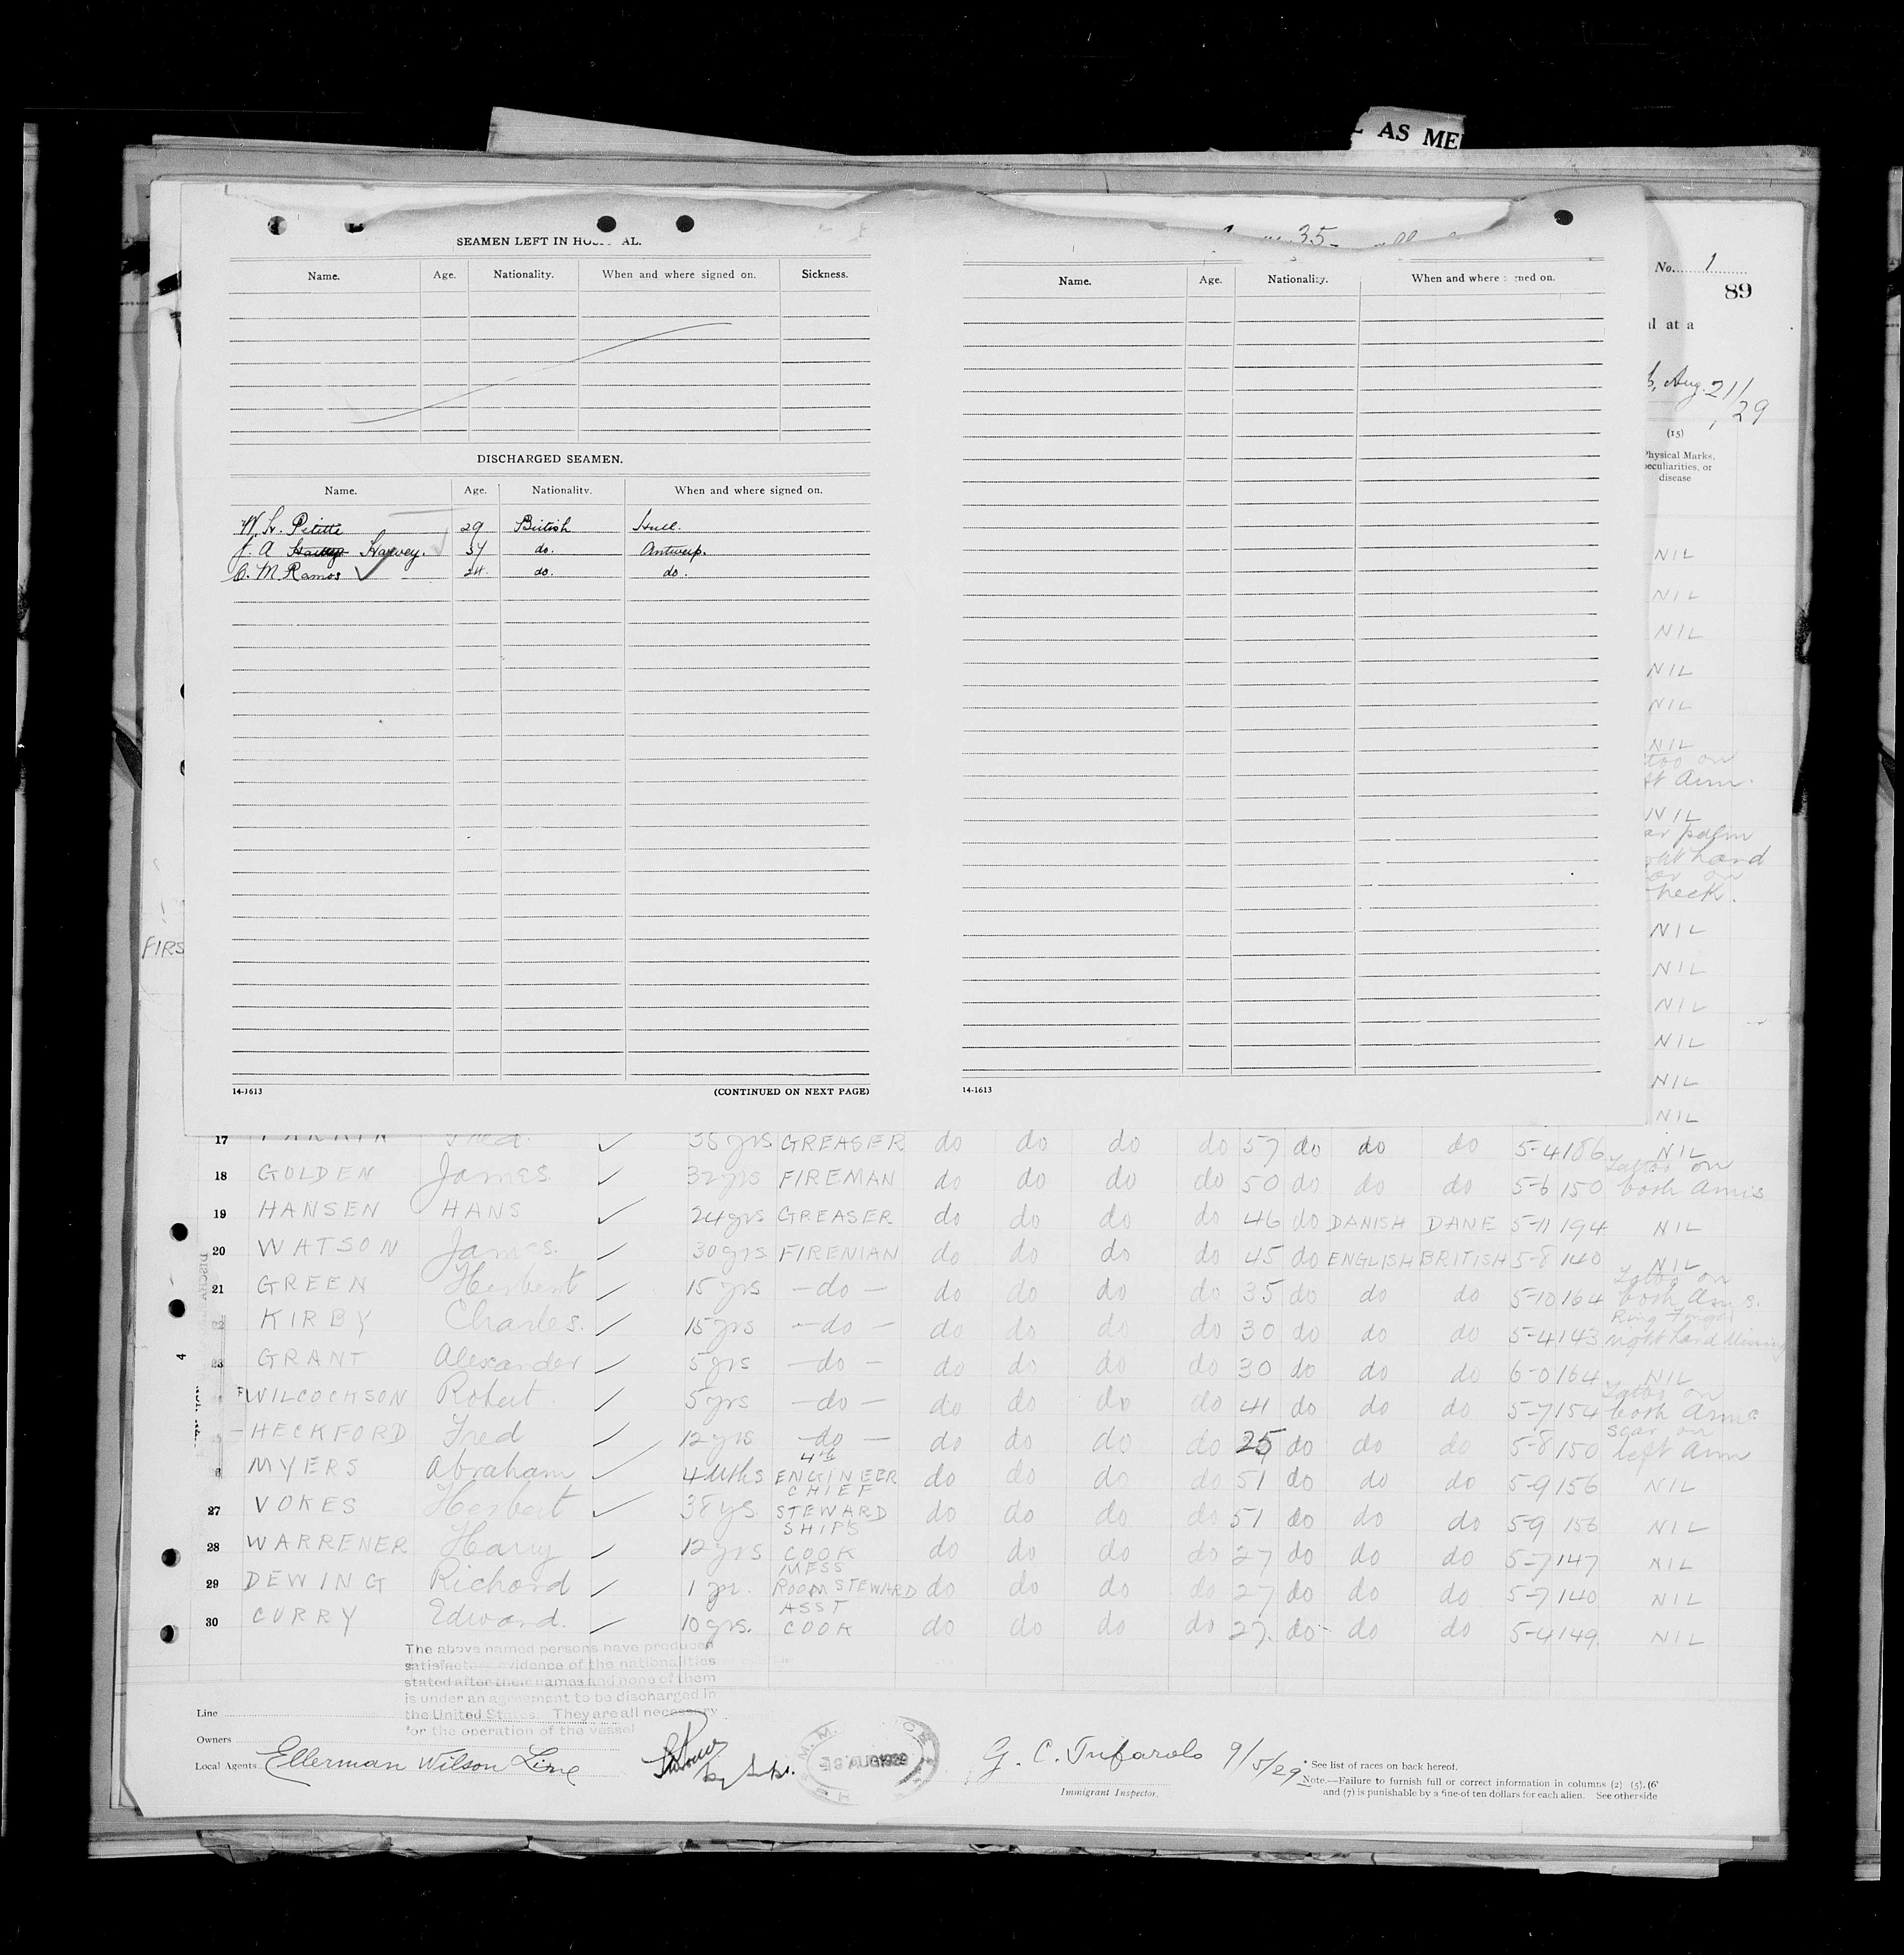 AS ME
SEAMEN LEFT IN HOS AL.
Name. Age. Nationality. When and where signed on. Sickness.
DISCHARGED SEAMEN.
Name. Age. Nationality. When and where signed on.
W. H. Petitte 29 British Hull.
J. A Harvey. 37 do. Antwerp.
O. M Ramos 24. do. do.
14-1613 (CONTINUED ON NEXT PAGE)
35
Name. Age. Nationality. When and where signed on.
14-1613
No. 1
89
l at a
Aug. 21/
29
(15)
Physical Marks,
peculiarities, or
disease
NIL
NIL
NIL
NIL
NIL
NIL
on
Arm.
NIL
palm
hand
on
neck.
NIL
NIL
NIL
NIL
NIL
NIL
FIRS
17 Fred. 35 yrs GREASER do do do do 57 do do do 5-4 186 NIL
18 GOLDEN James. 32 yrs FIREMAN do do do do 50 do do do 5-6 150 Tattoo on both Arms
19 HANSEN HANS 24 yrs GREASER do do do do 46 do DANISH DANE 5-11 194 NIL
20 WATSON James. 30 yrs FIREMAN do do do do 45 do ENGLISH BRITISH 5-8 140 NIL
21 GREEN Herbert 15 yrs - do - do do do do 35 do do do 5-10 164 Tattoo on both Arms.
22 KIRBY Charles. 15 yrs - do - do do do do 30 do do do 5-4 143 Ring Finger right hand Missing
23 GRANT Alexander 5 yrs - do - do do do do 30 do do do 6-0 164 NIL
WILCOCKSON Robert 5 yrs - do - do do do do 41 do do do 5-7 154 Tattoo on both Arms
HECKFORD Fred 12 yrs - do - do do do do 25 do do do 5-8 150 scar on left Arm
MYERS Abraham 4 Mths 4th ENGINEER do do do do 51 do do do 5-9 156 NIL
27 VOKES Herbert 38 ys. CHIEF STEWARD do do do do 51 do do do 5-9 156 NIL
28 WARRENER Harry 12 yrs SHIP'S COOK do do do do 27 do do do 5-7 147 NIL
29 DEWING Richard 1 yr. MESS ROOM STEWARD do do do do 27 do do do 5-7 140 NIL
30 CURRY Edward. 10 yrs. ASST COOK do do do do 27. do do do 5-4 149 NIL
4
The above named persons have produced
satisfactory evidence of the nationalities
stated after their names and none of them
is under an agreement to be discharged in
the United States. They are all necessary
for the operation of the vessel
Line
Owners
Local Agents Ellerman Wilson Line
G. C. Tufarolo 9/5/29
Immigrant Inspector.
* See list of races on back hereof.
Note.—Failure to furnish full or correct information in columns (2) (5), (6
and (7) is punishable by a fine of ten dollars for each alien. See other side